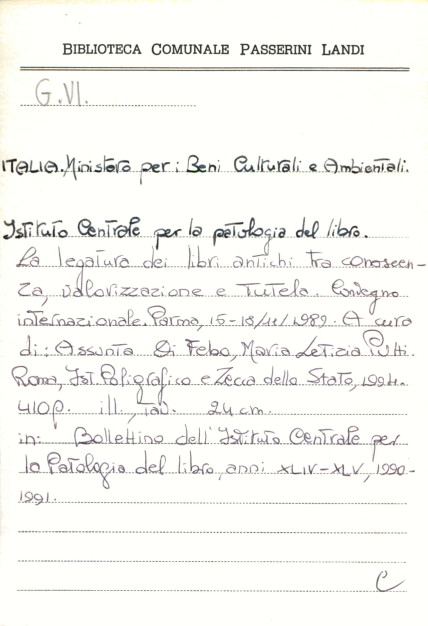 BIBLIOTECA COMUNALE PASSERINI LANDI
G.VI.
ITALIA. Ministero per i Beni Culturali e Ambientali.
Istituto Centrale per la patologia del libro.
La legatura dei libri antichi tra conoscen-
za, valorizzazione e tutela. Convegno
internazionale. Parma, 15-18/11/1989. A cura
di: Assunta Di Febo, Maria Letizia Putti.
Roma, Ist. Poligrafico e Zecca dello Stato, 1994.
410p. ill., tav. 24 cm.
in: Bollettino dell'Istituto Centrale per
la Patologia del libro, anni XLIV-XLV, 1990-
1991.
C